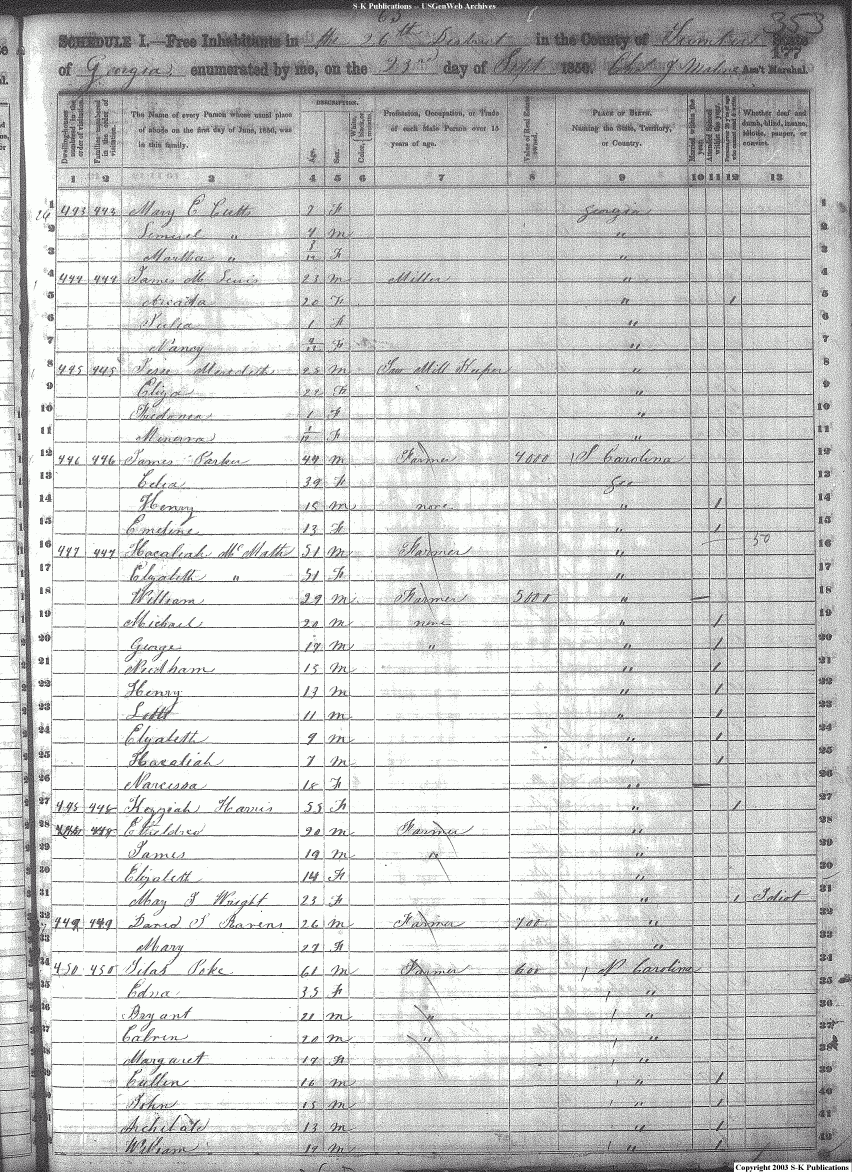 S-K Publications -- USGenWeb Archives
353
SCHEDULE I.—Free Inhabitants in the 26th District in the County of State
of Georgia enumerated by me, on the 23rd day of Sept 1850. Ass't Marshal.
177
DESCRIPTION.
Dwelling-houses numbered in the order of visitation.
Families numbered in the order of visitation.
The Name of every Person whose usual place of abode on the first day of June, 1850, was in this family.
Age.
Sex.
Color, White, black, or mulatto.
Profession, Occupation, or Trade of each Male Person over 15 years of age.
Value of Real Estate owned.
PLACE OF BIRTH. Naming the State, Territory, or Country.
Married within the year.
Attended School within the year.
Whether deaf and dumb, blind, insane, idiotic, pauper, or convict.
1 2 3 4 5 6 7 8 9 10 11 12 13
1 443 443 Mary E Cutts 7 F Georgia 1
2 Lemuel " 4 m " 2
3 Martha " F " 3
4 444 444 James M Lewis 23 m Miller " 4
5 20 F " 1 5
6 Julia 1 F " 6
7 Nancy F " 7
8 445 445 Jesse Meredith 28 m Saw Mill Keeper " 8
9 Eliza F " 9
10 Fredonia 1 F " 10
11 Minerva 1/12 F " 11
12 446 446 James Parker 44 m Farmer 4000 S Carolina 12
13 Celia 39 F Geo 13
14 Henry 15 m none " 1 14
15 Emeline 13 F " 1 15
16 447 447 Hacaliah McMath 51 m Farmer " 50 16
17 Elizabeth " 51 F " 17
18 William 29 m Farmer 5000 " 18
19 Michael 20 m none " 1 19
20 George 17 m " " 1 20
21 Needham 15 m " 1 21
22 Henry 13 m " 1 22
23 Lott 11 m " 1 23
24 Elizabeth 9 m " 1 24
25 Hacaliah 7 m " 1 25
26 Narcissa 18 F " 26
27 448 448 Kezziah Harris 55 F " 1 27
28 448 Etheldred 20 m Farmer " 28
29 James 19 m " " 29
30 Elizabeth 14 F " 30
31 May T Wright 23 F " 1 Idiot 31
32 449 449 David S 26 m Farmer 700 " 32
33 Mary 27 F " 33
34 450 450 Silas Poke 61 m Farmer 600 N Carolina 34
35 Edna 35 F " 35
36 Bryant 21 m " " 36
37 Calvin 20 m " " 37
38 Margaret 17 F " 38
39 Cullen 16 m " 1 39
40 John 15 m " 1 40
41 13 m " 1 41
42 William m " 1 42
Copyright 2003 S-K Publications